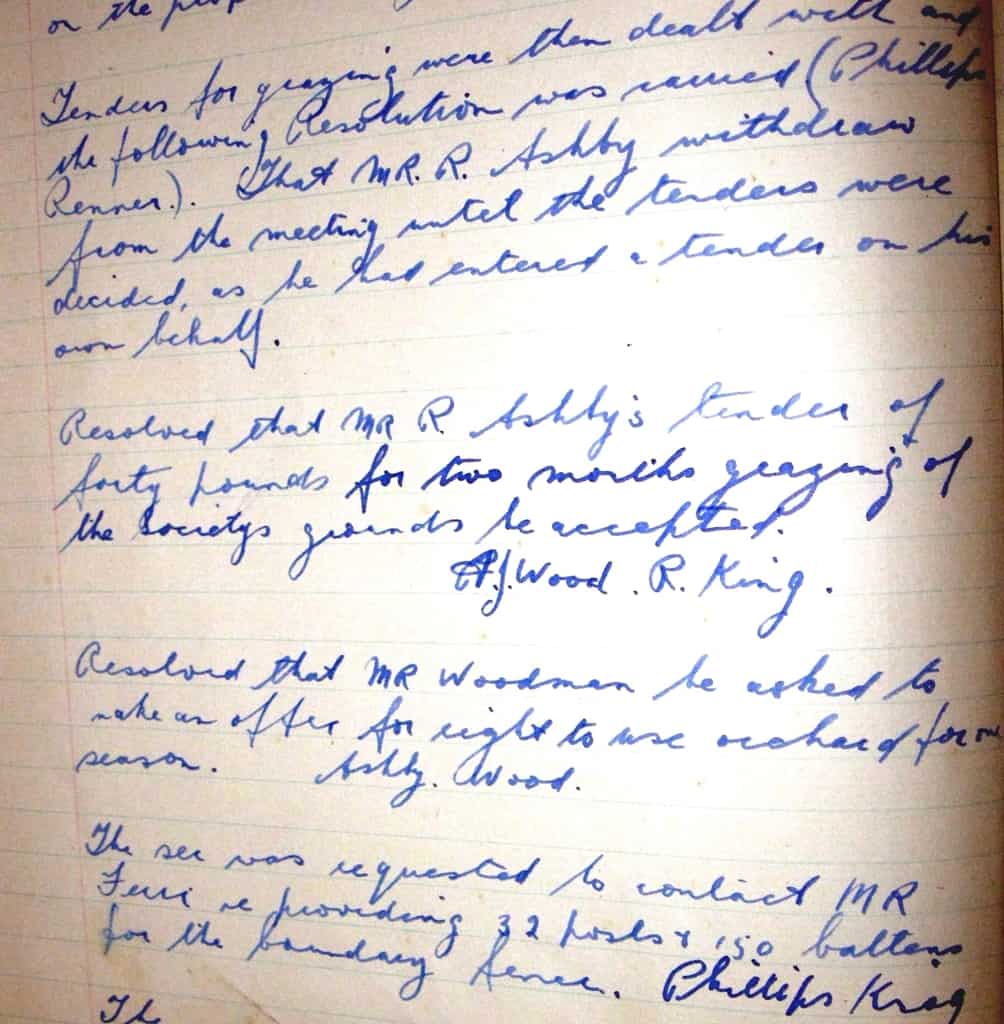 or the prop
Tenders for grazing were then dealt with and
the following Resolution was carried (Phillips
Renner.). That MR. R. Ashby withdraw
from the meeting until the tenders were
decided, as he had entered a tender on his
own behalf.
Resolved that MR R. Ashby's tender of
forty pounds for two months grazing of
the Societys grounds be accepted.
A.J. Wood. R. King.
Resolved that MR Woodman be asked to
make an offer for right to use orchard for one
season. Ashby. Wood.
The sec was requested to contact MR
re providing 32 posts & 150 battens
for the boundary fence. Phillips Krog
Th